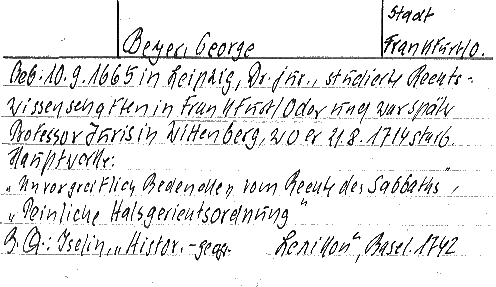 Stadt
Beyer, George
Frankfurt/O.
Geb. 10.9.1665 in Leipzig, Dr. jur., studierte Rechts-
wissenschaften in Frankfurt/Oder und war später
Professor Juris in Wittenberg, wo er 21.8.1714 starb.
Hauptwerke:
„Unvorgreiflich Bedencken vom Rechte des Sabbaths",
„Peinliche Halsgerichtsordnung"
B.Q.: Iselin, „Histor.-geogr. Lexikon", Basel. 1742